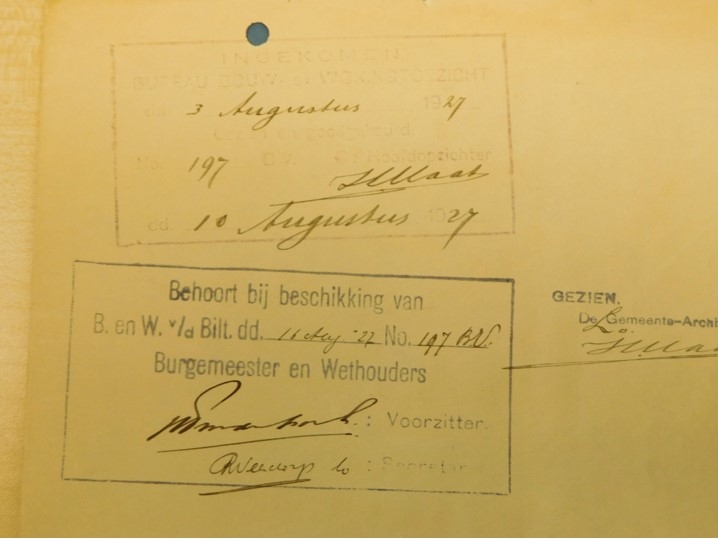 INGEKOMEN
BUREAU BOUW- en WONINGTOEZICHT
dd. 3 Augustus 1927
No. 197 B.V. De Hoofdopzichter
dd. 10 Augustus 1927
Behoort bij beschikking van
B. en W. v/d Bilt. dd. 16 Aug. '27 No. 197 B.V.
Burgemeester en Wethouders
: Voorzitter.
lo : Secretar
GEZIEN.
De Gemeente-Archi
Lo.